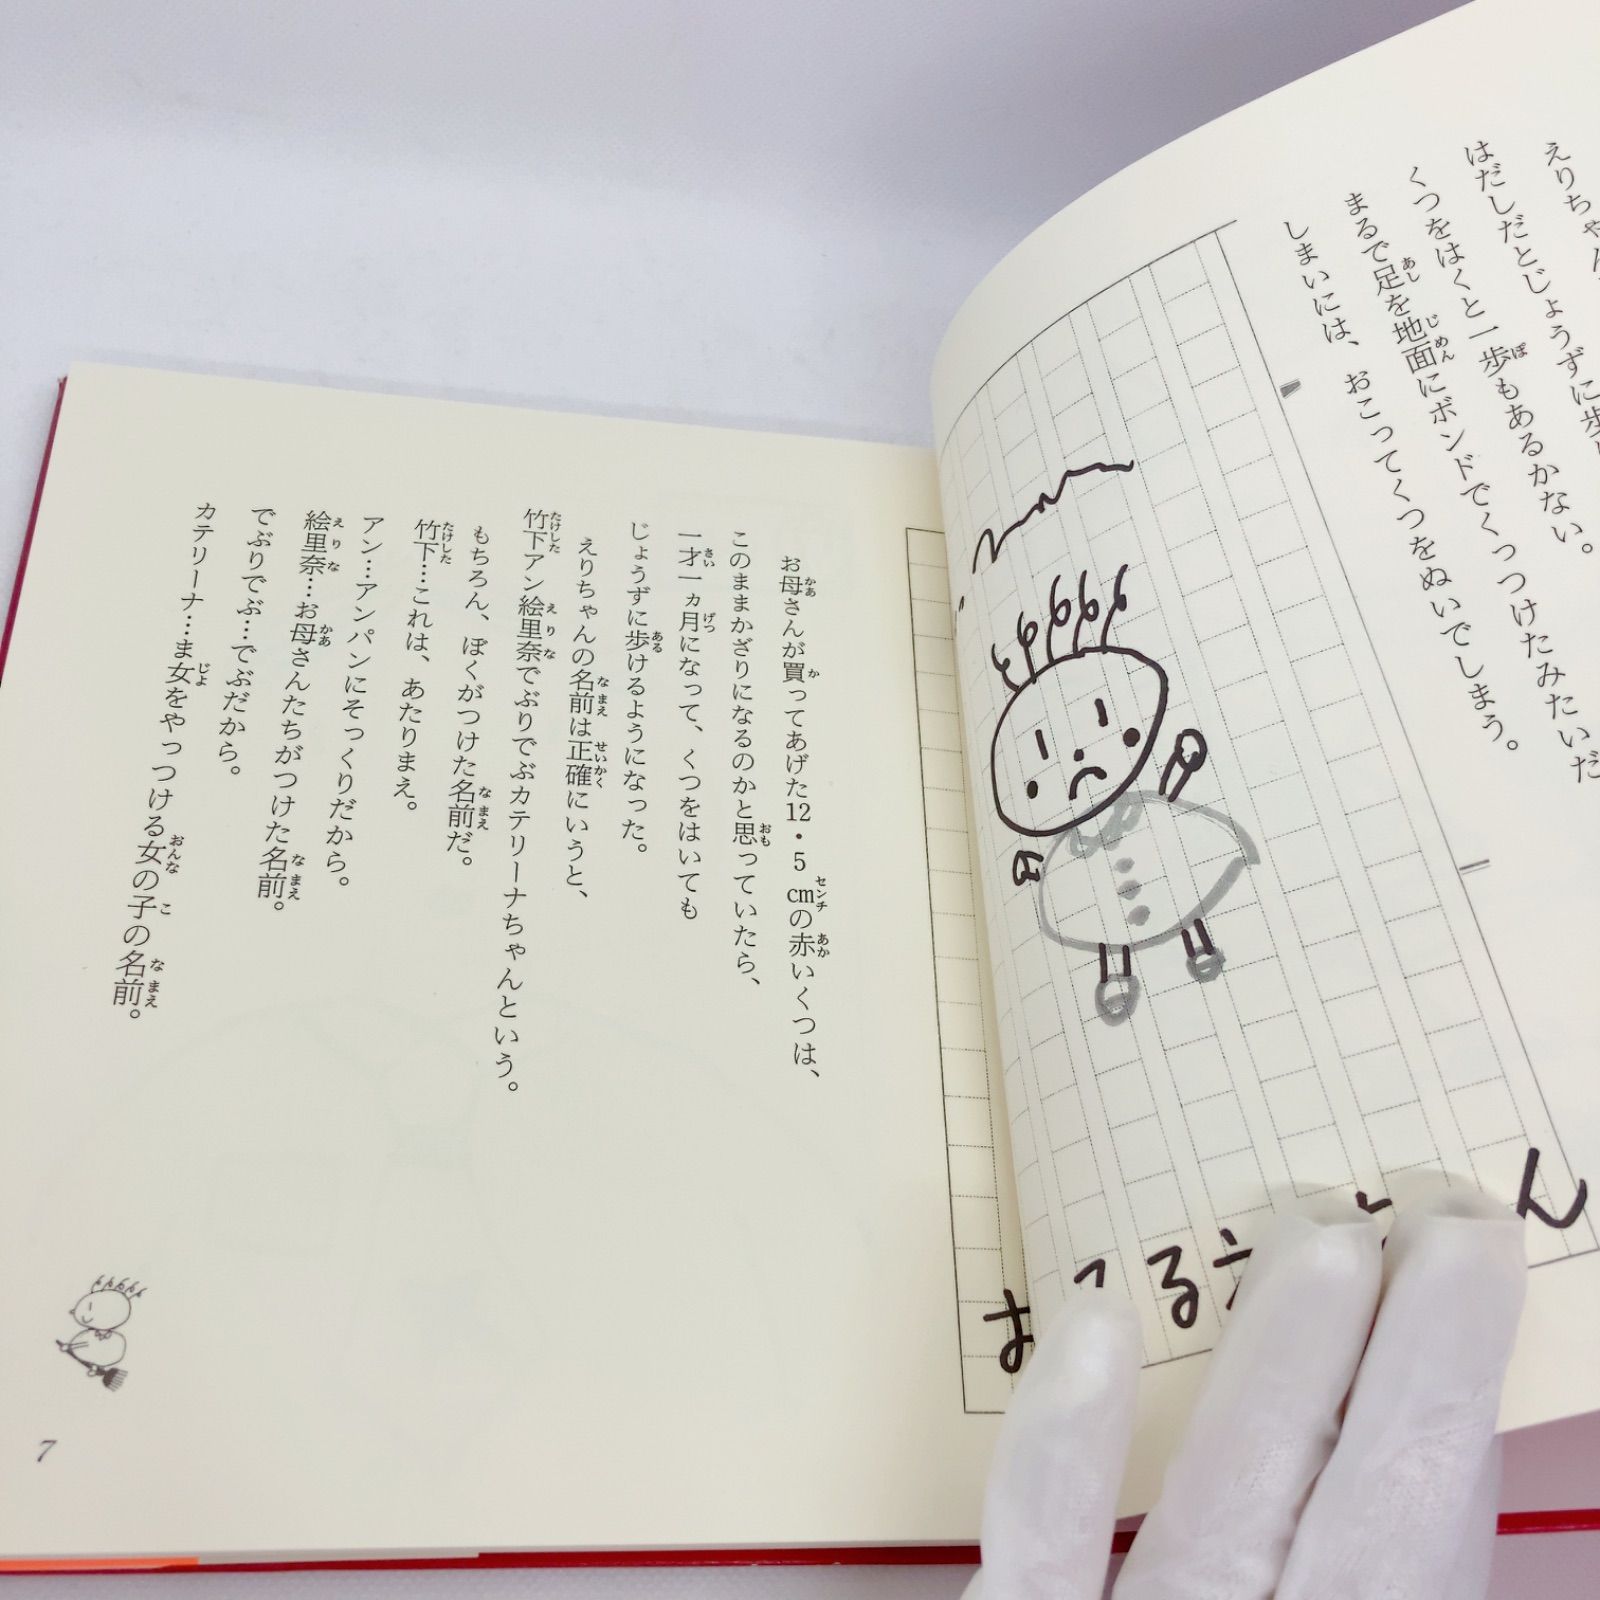 えりちゃん
はだしだとじょうずに歩
くつをはくと一歩もあるかない。
まるで足を地面にボンドでくっつけたみたいだ
しまいには、おこってくつをぬいでしまう。
おこるえ
ん
お母さんが買ってあげた12・5cmの赤いくつは、
このままかざりになるのかと思っていたら、
一才一ヵ月になって、くつをはいても
じょうずに歩けるようになった。
えりちゃんの名前は正確にいうと、
竹下アン絵里奈でぶりでぶカテリーナちゃんという。
もちろん、ぼくがつけた名前だ。
竹下…これは、あたりまえ。
アン…アンパンにそっくりだから。
絵里奈…お母さんたちがつけた名前。
でぶりでぶ…でぶだから。
カテリーナ…ま女をやっつける女の子の名前。
7